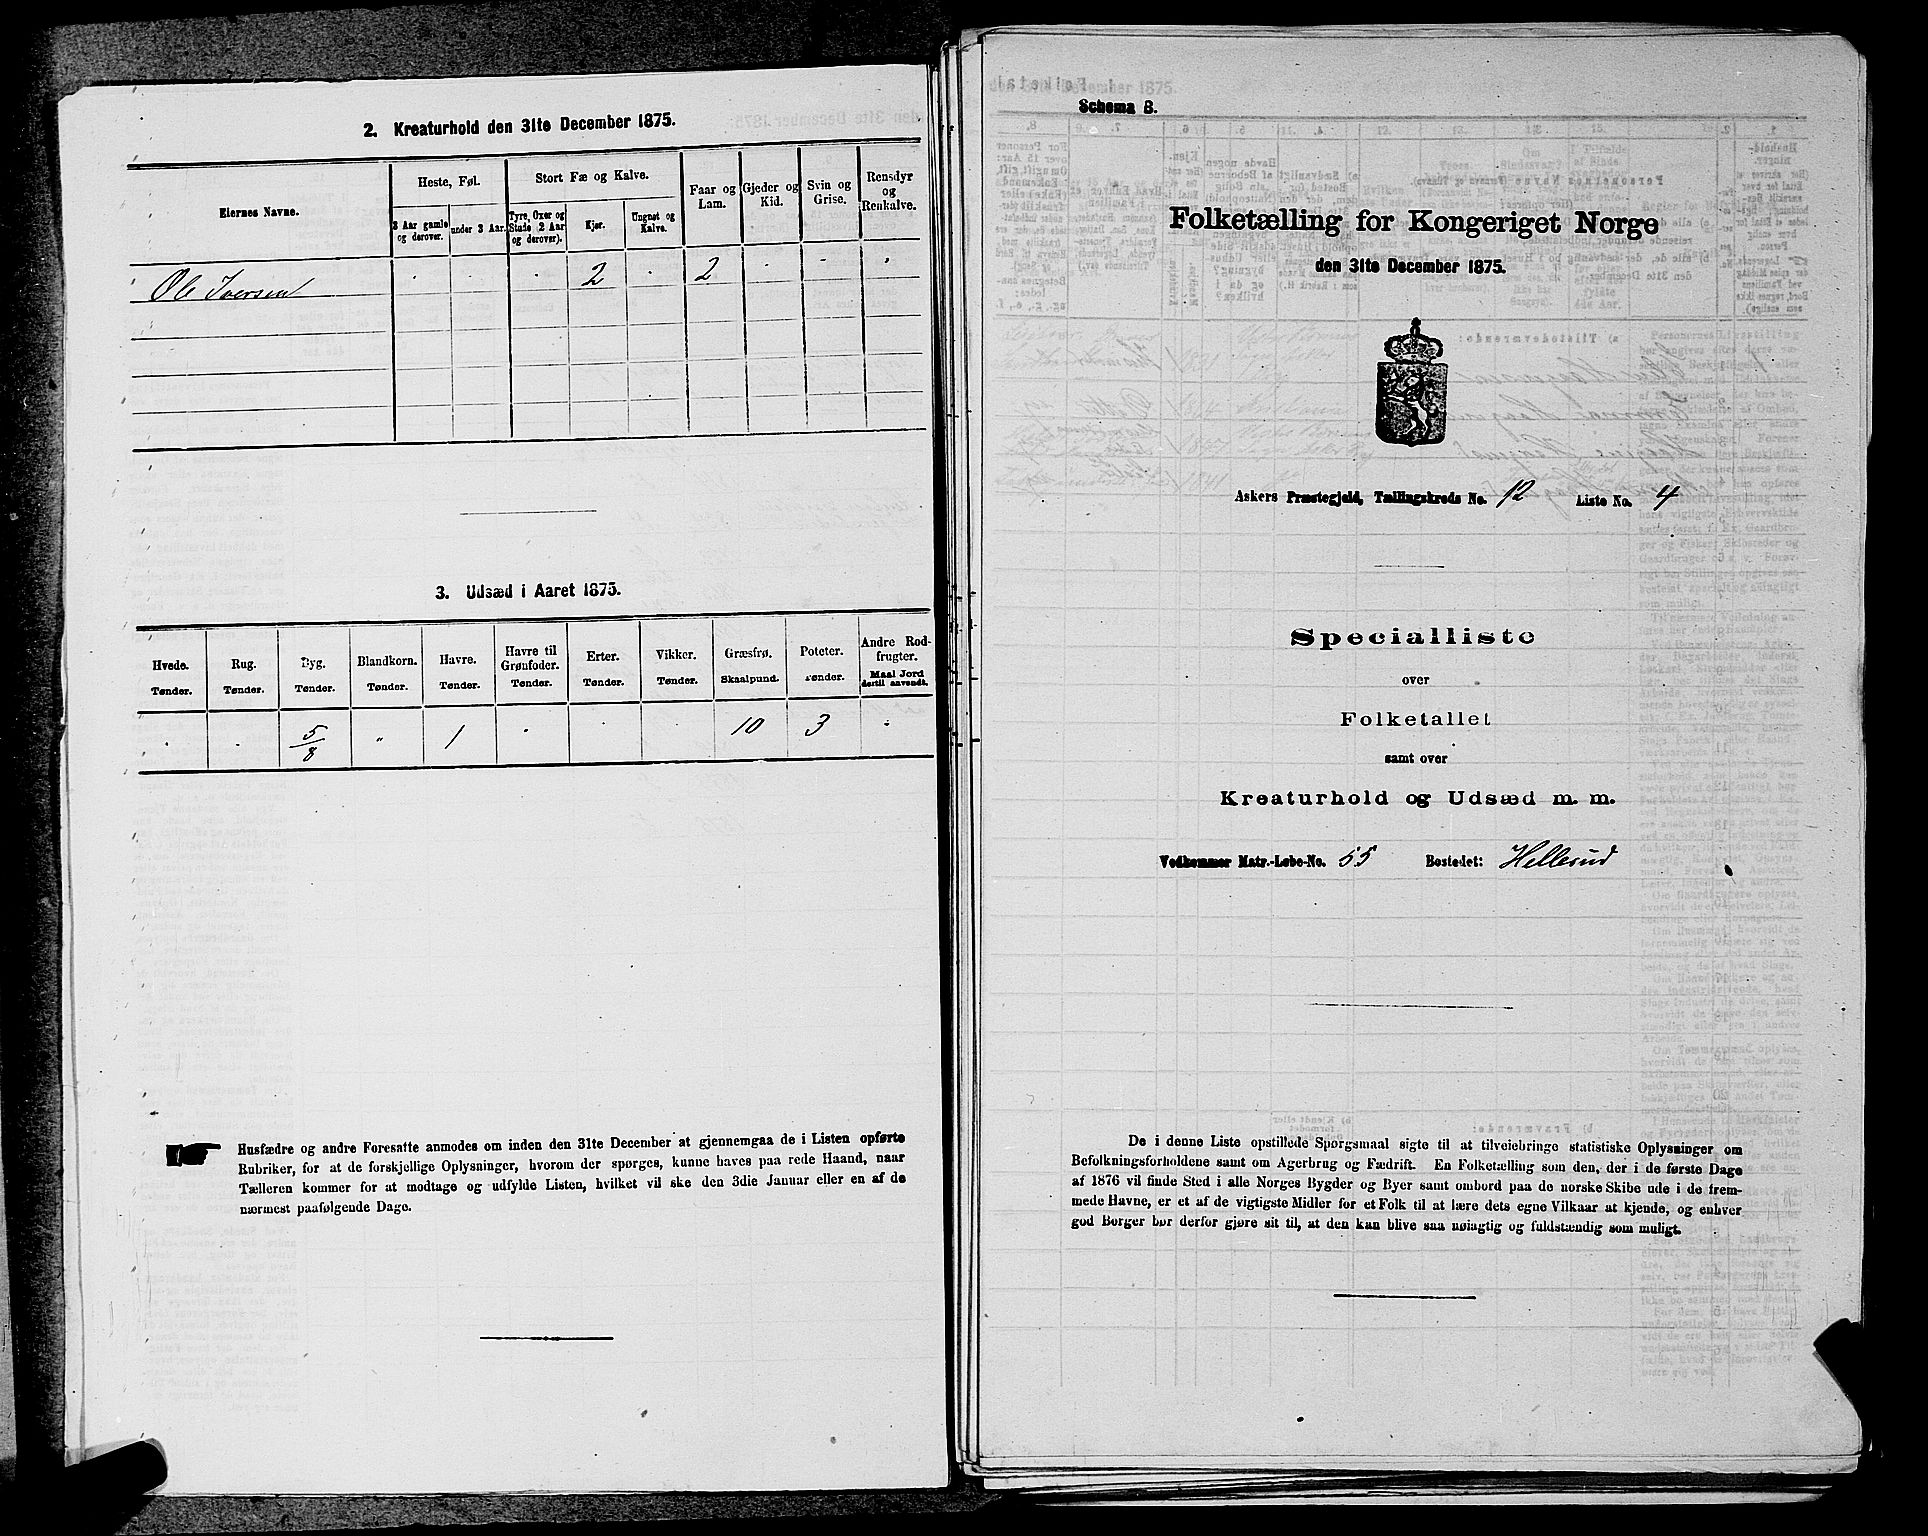 2. Kreaturhold den 31te December 1875.
Eiernes Navne.
Heste, Føl.
Stort Fæ og Kalve.
Faar og Lam.
Gjeder og Kid.
Svin og Grise.
Rensdyr og Renkalve.
3 Aar gamle og derover.
under 3 Aar.
Tyre, Oxer og Stude (2 Aar og derover).
Kjør.
Ungnøt og Kalve.
Ole Iversen . . . 2 . 2 . . .
3. Udsæd i Aaret 1875.
Hvede. Rug. Byg. Blandkorn. Havre. Havre til Grønfoder. Erter. Vikker. Græsfrø. Poteter. Andre Rodfrugter.
Tønder. Tønder. Tønder. Tønder. Tønder. Tønder. Tønder. Tønder. Skaalpund. Tønder. Maal Jord dertil anvendt.
. . 5/8 " 1 . . . 10 3 .
Husfædre og andre Foresatte anmodes om inden den 31te December at gjennemgaa de i Listen opførte
Rubriker, for at de forskjellige Oplysninger, hvorom der spørges, kunne haves paa rede Haand, naar
Tælleren kommer for at modtage og udfylde Listen, hvilket vil ske den 3die Januar eller en af de
nærmest paafølgende Dage.
Schema 8.
Folketælling for Kongeriget Norge
den 31te December 1875.
Askers Præstegjeld, Tællingskreds No. 12 Liste No. 4
Specialliste
over
Folketallet
samt over
Kreaturhold og Udsæd m. m.
Vedkommer Matr.-Løbe-No. 55 Bostedet: Hellerud
De i denne Liste opstillede Spørgsmaal sigte til at tilveiebringe statistiske Oplysninger om
Befolkningsforholdene samt om Agerbrug og Fædrift. En Folketælling som den, der i de første Dage
af 1876 vil finde Sted i alle Norges Bygder og Byer samt ombord paa de norske Skibe ude i de frem-
mede Havne, er et af de vigtigste Midler for et Folk til at lære dets egne Vilkaar at kjende, og enhver
god Borger bør derfor gjøre sit til, at den kan blive saa nøiagtig og fuldstændig som muligt.